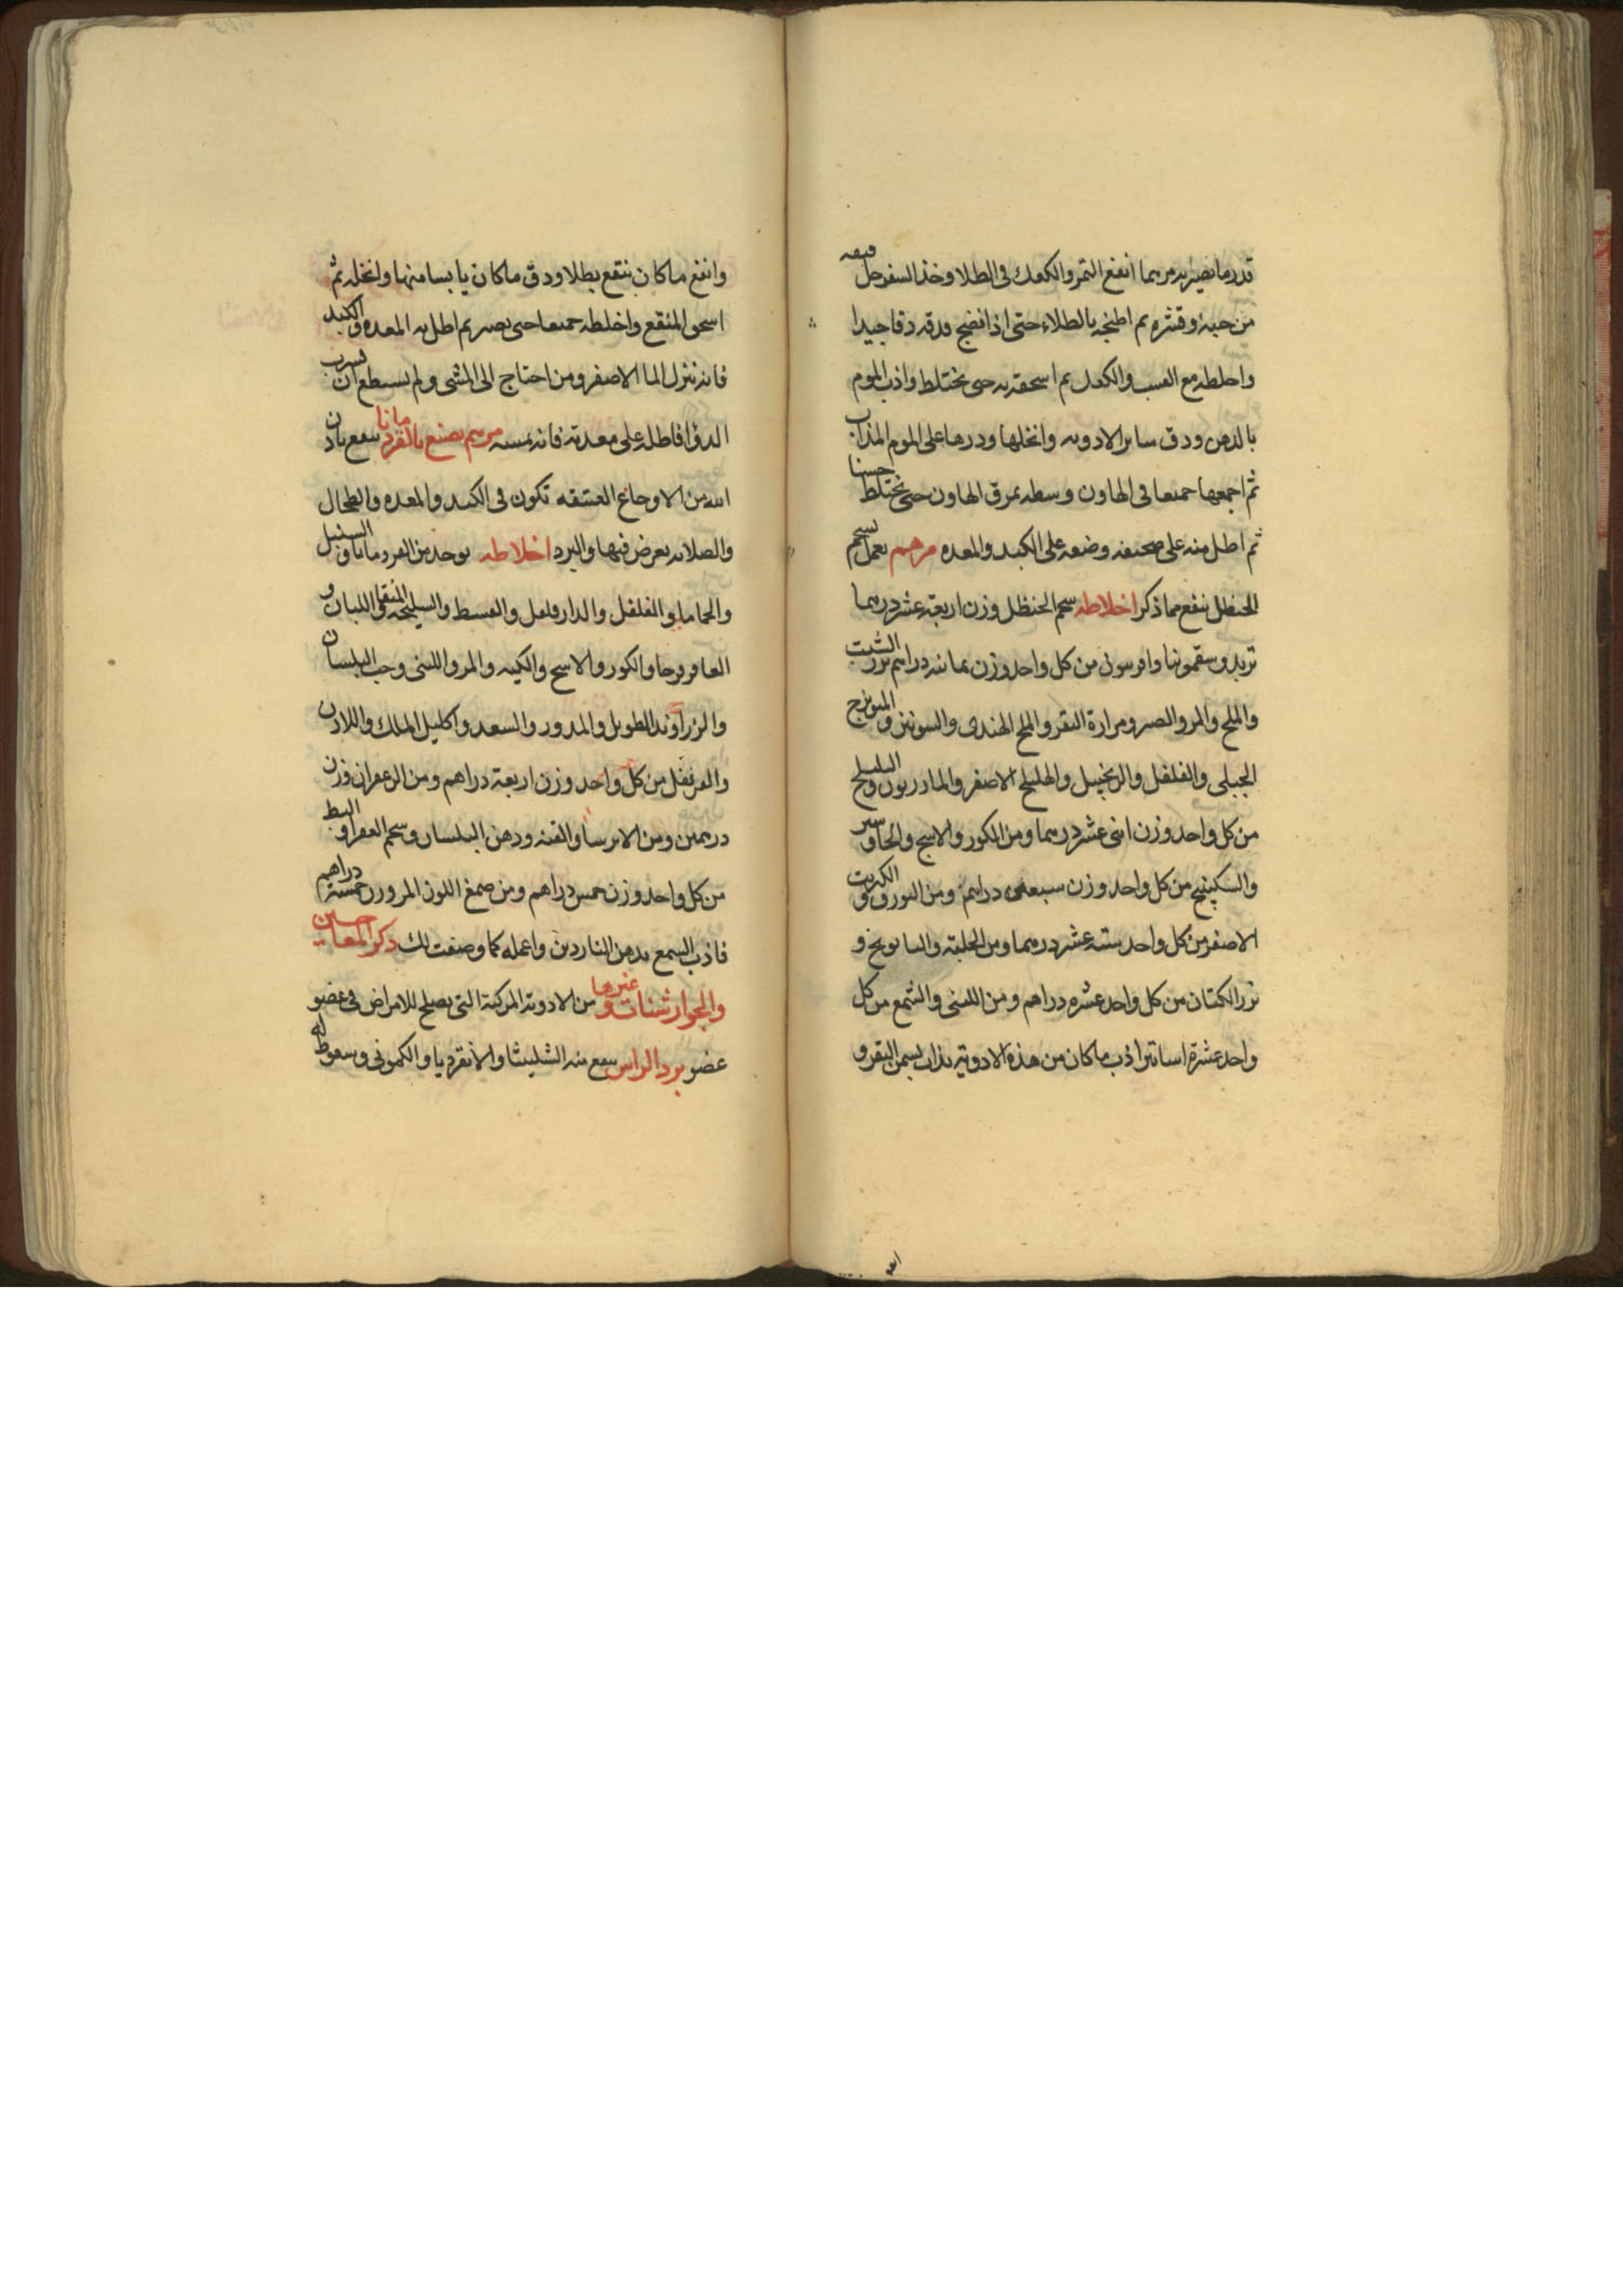 قدر ما يصير به مرهما انقع التمر والكعك فى الطلا وخذ السفرجل فنقه
من حبه وقشره ثم اطبخه بالطلاء حتى اذا نضج فدقه دقا جيدا
واخلطه مع القسب والكعك ثم اسحقه به حتى يختلط واذب الموم
بالدهن ودق ساير الادويه وانخلها وذرها على الموم المذاب
ثم اجمعها جميعا فى الهاون وسطه بمرق الهاون حتى يختلط حسنا
ثم اطل منه على صحيفه وضعه على الكبد والمعده مرهم يعمل بشحم
الحنظل ينفع مما ذكر اخلاطه شحم الحنظل وزن اربعة عشر درهما
تربد وسقمونيا وافربيون من كل واحد وزن ثمانيه دراهم بزر الشبت
والملح والمر والصبر ومرارة البقر والملح الهندى والشونيز و الميويزج
الجبلى والفلفل والزنجبيل والهليلج الاصفر والمازريون و البليلج
من كل واحد وزن اثنى عشر درهما ومن الكور والاشج والجاوشير
والسكبينج من كل واحد وزن سبعه دراهم ومن البورق و الكبريت
الاصفر من كل واحد سته عشر درهما ومن الحلبة والبابونج و
بزر الكتان من كل واحد عشره دراهم ومن اللبنى والشمع من كل
واحد عشرة اساتير اذب ما كان من هذه الادوية يذاب بسمن البقر و
وانقع ما كان ينقع بطلا ودق ما كان يابسا منها وانخله ثم
اسحق المنقع واخلطه جميعا حتى يصير ثم اطل به المعده والكبد
فانه ينزل الما الاصفر ومن احتاج الى المشى ولم يستطع ان يشرب
الدوا فاطله على معدته فانه يمسه مرهم يصنع بالقردمانا ينفع باذن
الله من الاوجاع العتيقه تكون فى الكبد والمعده والطحال
والصلابه يعرض فيها والبرد اخلاطه يوخذ من القردمانا و السنبل
والحماما والفلفل والدارفلفل والقسط والسليخه المنقى واللبان و
العاقرقرحا والكور والاشج والكيه والمر واللبنى وحب البلسان
والزراوند الطويل والمدور والسعد واكليل الملك واللاذن
والقرنفل من كل واحد وزن اربعة دراهم ومن الزعفران وزن
درهمين ومن الايرسا والقنه ودهن البلسان وشحم العفر او البط
من كل واحد وزن خمس دراهم ومن صمغ اللوز المر وزن خمسة دراهم
فاذب الشمع بدهن الناردين واعمله كما وصفت لك ذكر المعاجين
والجوارشنات وغيرها من الادوية المركبة التى يصلح للامراض فى عضو
عضو برد الراس ينفع منه الشليثا والانقرديا والكمونى وسعوط له